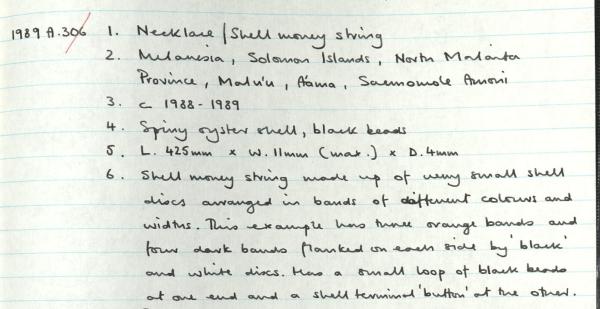 1989 A.306 1. Necklace / Shell money string
2. Melanesia, Solomon Islands, North Malaita
Province, Malu'u, A'ama, Saemomole Amoni
3. c 1988-1989
4. Spiny oyster shell, black beads
5. L. 425mm x W. 11mm (max.) x D. 4mm
6. Shell money string made up of very small shell
discs arranged in bands of different colours and
widths. This example has three orange bands and
four dark bands flanked on each side by 'black'
and white discs. Has a small loop of black beads
at one end and a shell terminal 'button' at the other.